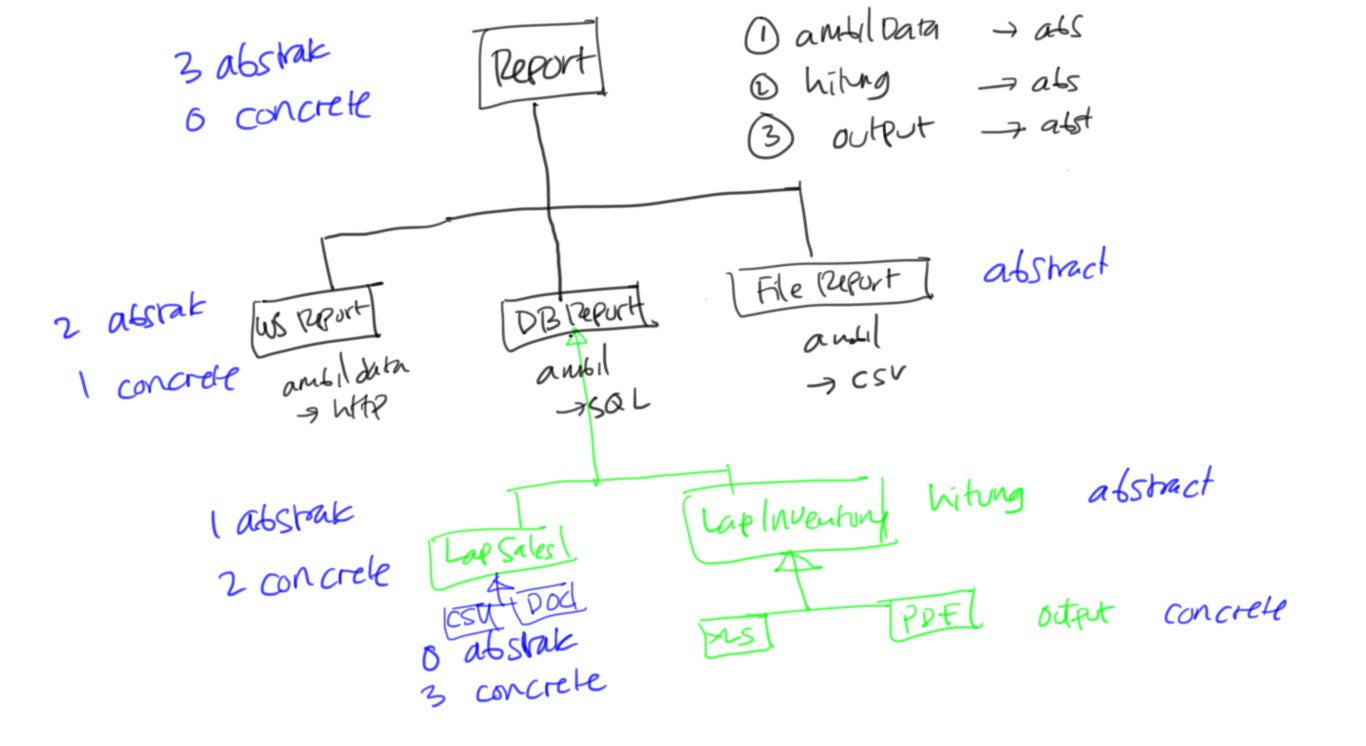 3 abstrak
0 concrete
Report
① ambilData → abs
② hitung → abs
③ output → abst
2 abstrak
1 concrete
WS Report
ambildata
→ http
DB Report
ambil
→ SQL
File Report
ambil
→ CSV
abstract
1 abstrak
2 concrete
Lap Sales
CSV
DOC
0 abstrak
3 concrete
Lap Inventory
hitung
abstract
XLS
PDF
output
concrete